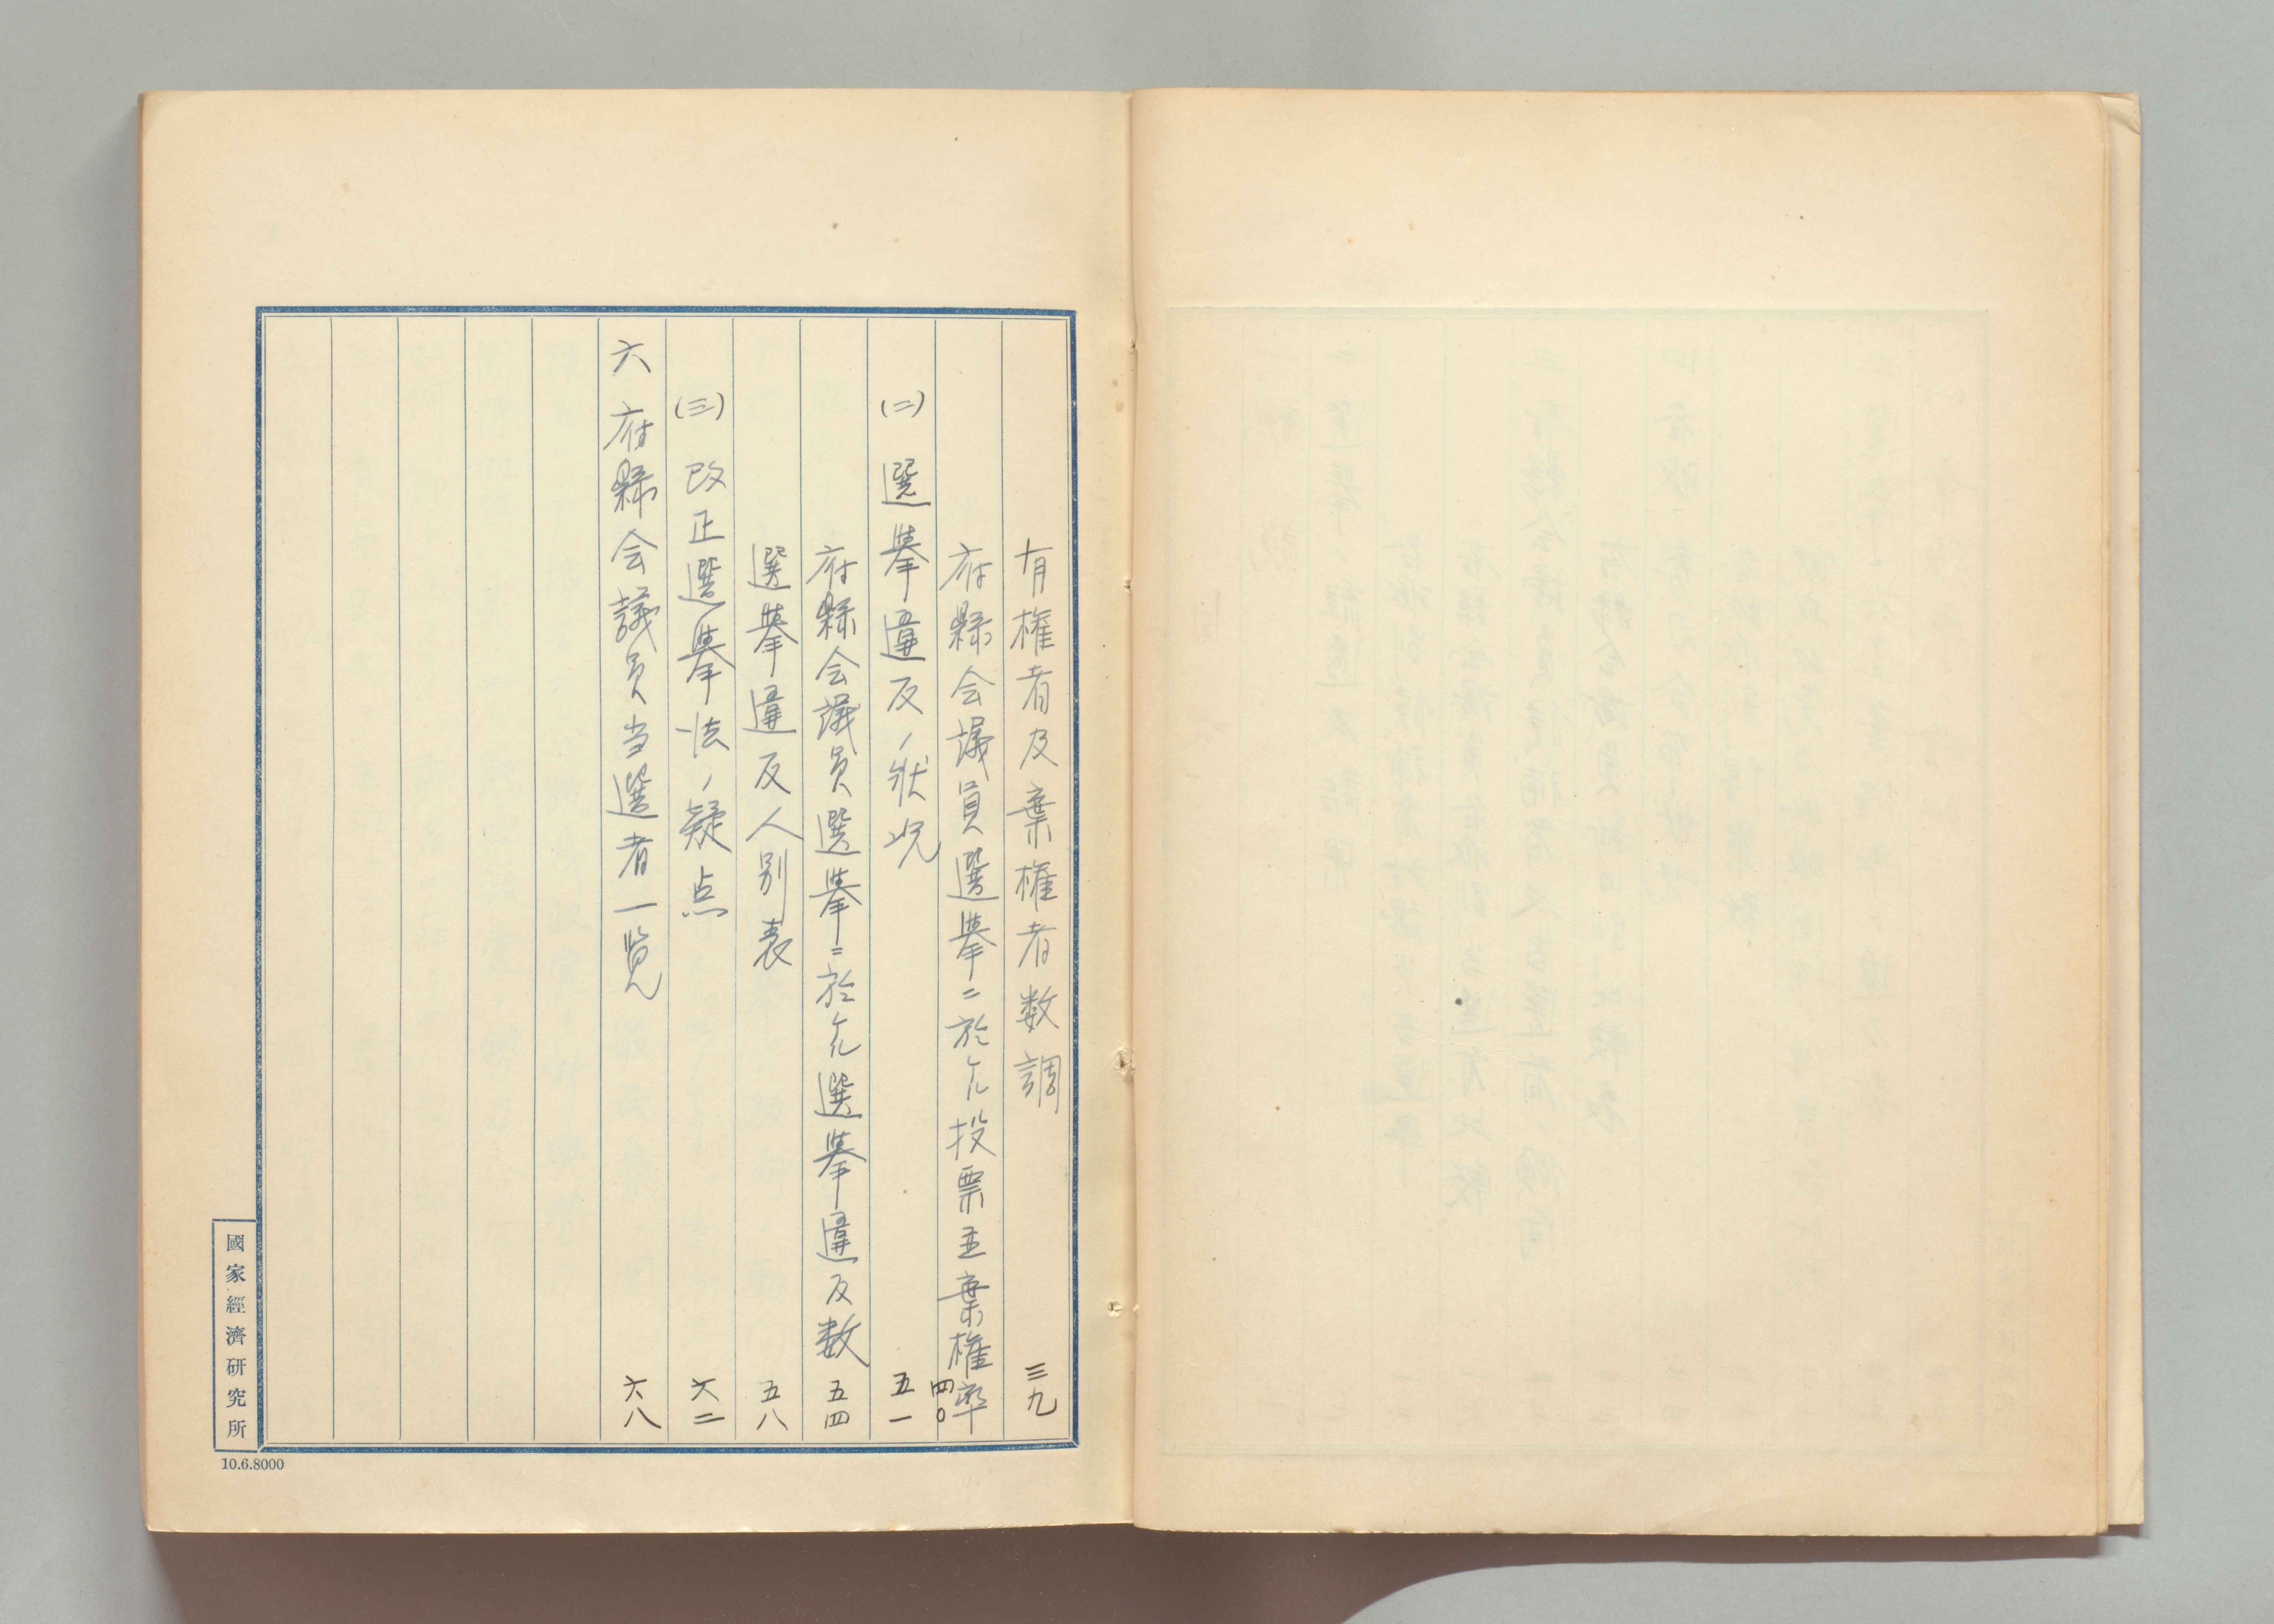 有権者及棄権者数調 三九
府縣会議員選挙ニ於ケル投票並棄権率 四〇
(二) 選挙違反ノ状况 五一
府縣会議員選挙ニ於ケル選挙違反数 五四
選挙違反人別表 五八
(三) 改正選挙法ノ疑点 六二
六 府縣会議員当選者一覧 六八
國家經濟研究所
10.6.8000